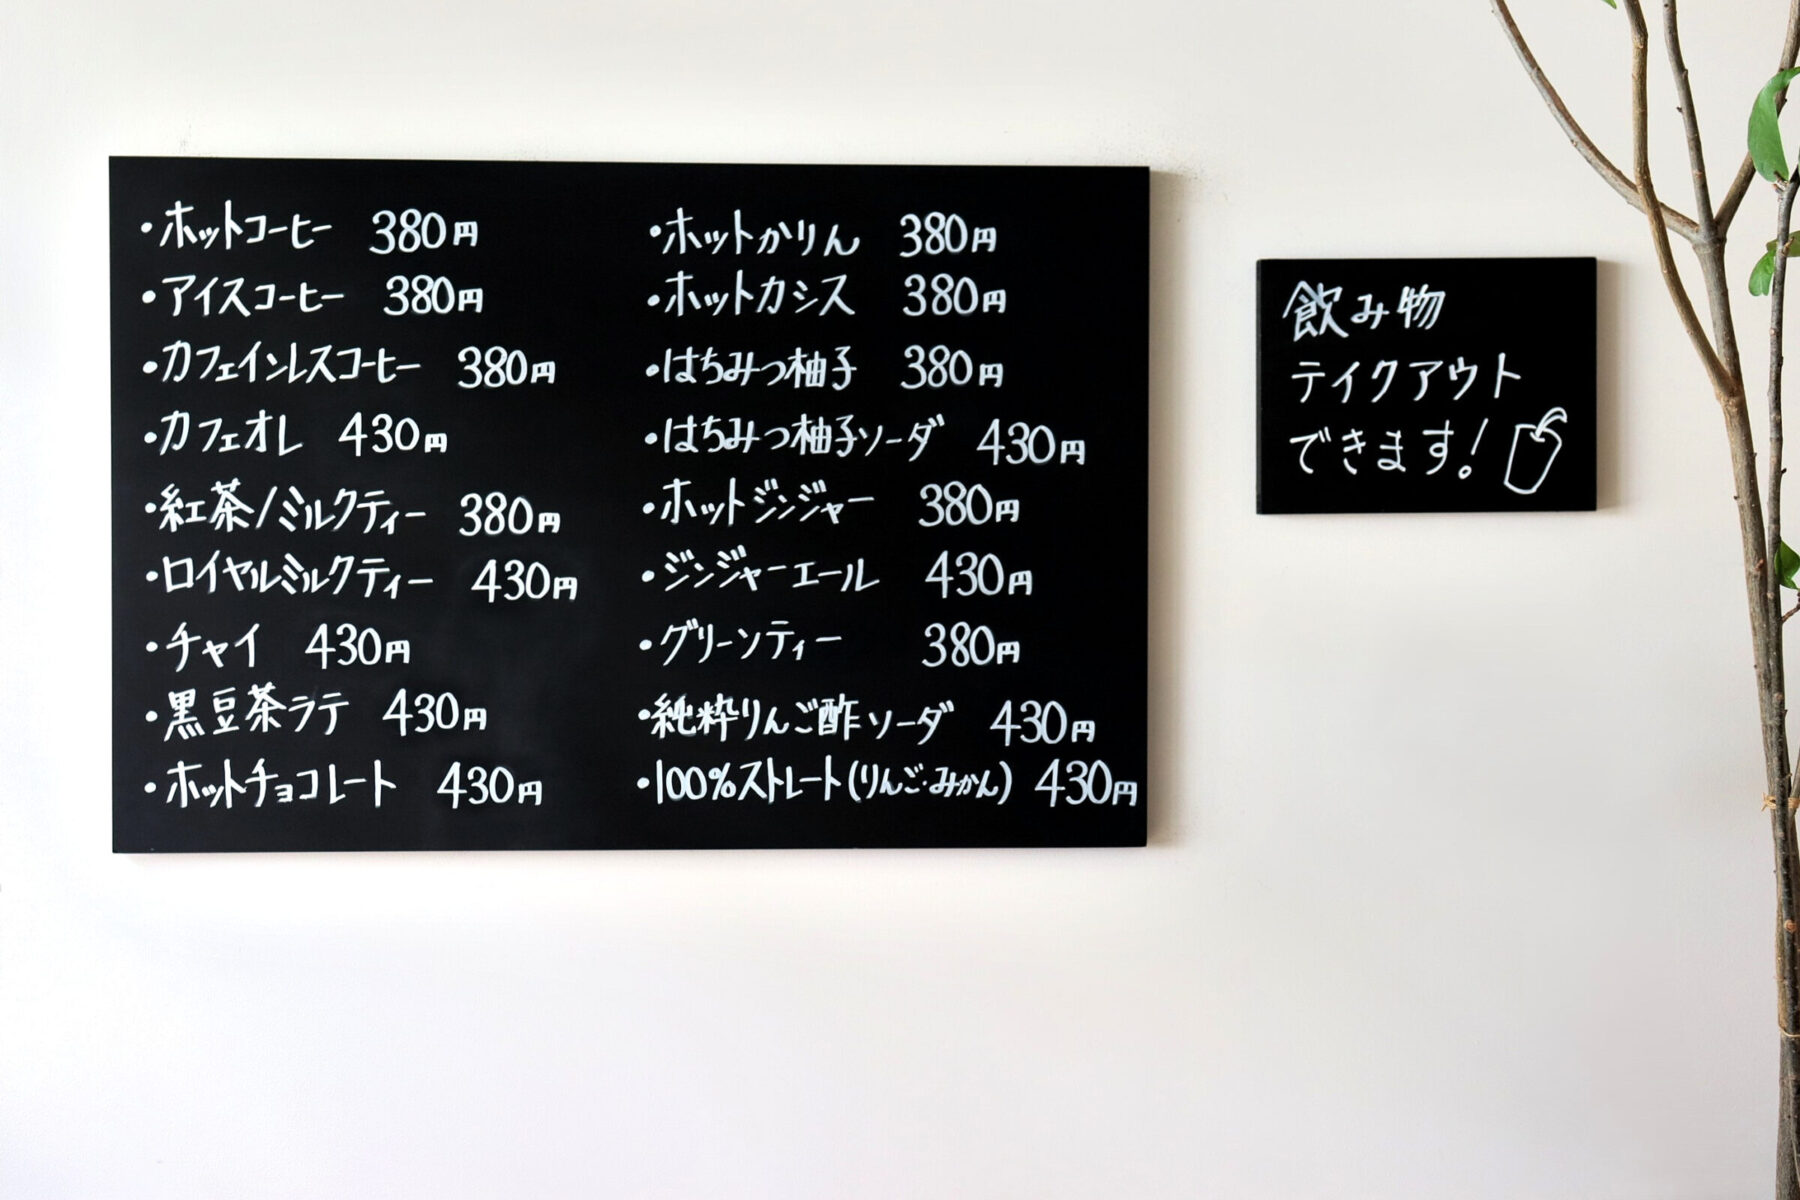 ・ホットコーヒー 380円
・アイスコーヒー 380円
・カフェインレスコーヒー 380円
・カフェオレ 430円
・紅茶/ミルクティー 380円
・ロイヤルミルクティー 430円
・チャイ 430円
・黒豆茶ラテ 430円
・ホットチョコレート 430円
・ホットかりん 380円
・ホットカシス 380円
・はちみつ柚子 380円
・はちみつ柚子ソーダ 430円
・ホットジンジャー 380円
・ジンジャーエール 430円
・グリーンティー 380円
・純粋りんご酢ソーダ 430円
・100%ストレート(りんご・みかん) 430円
飲み物
テイクアウト
できます!